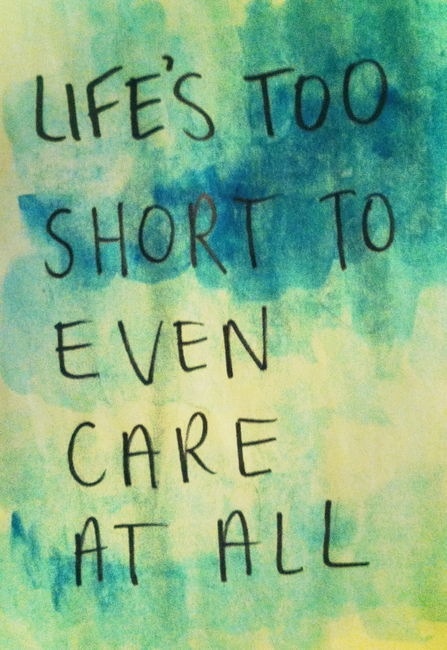 LIFE'S TOO
SHORT TO
EVEN
CARE
AT ALL